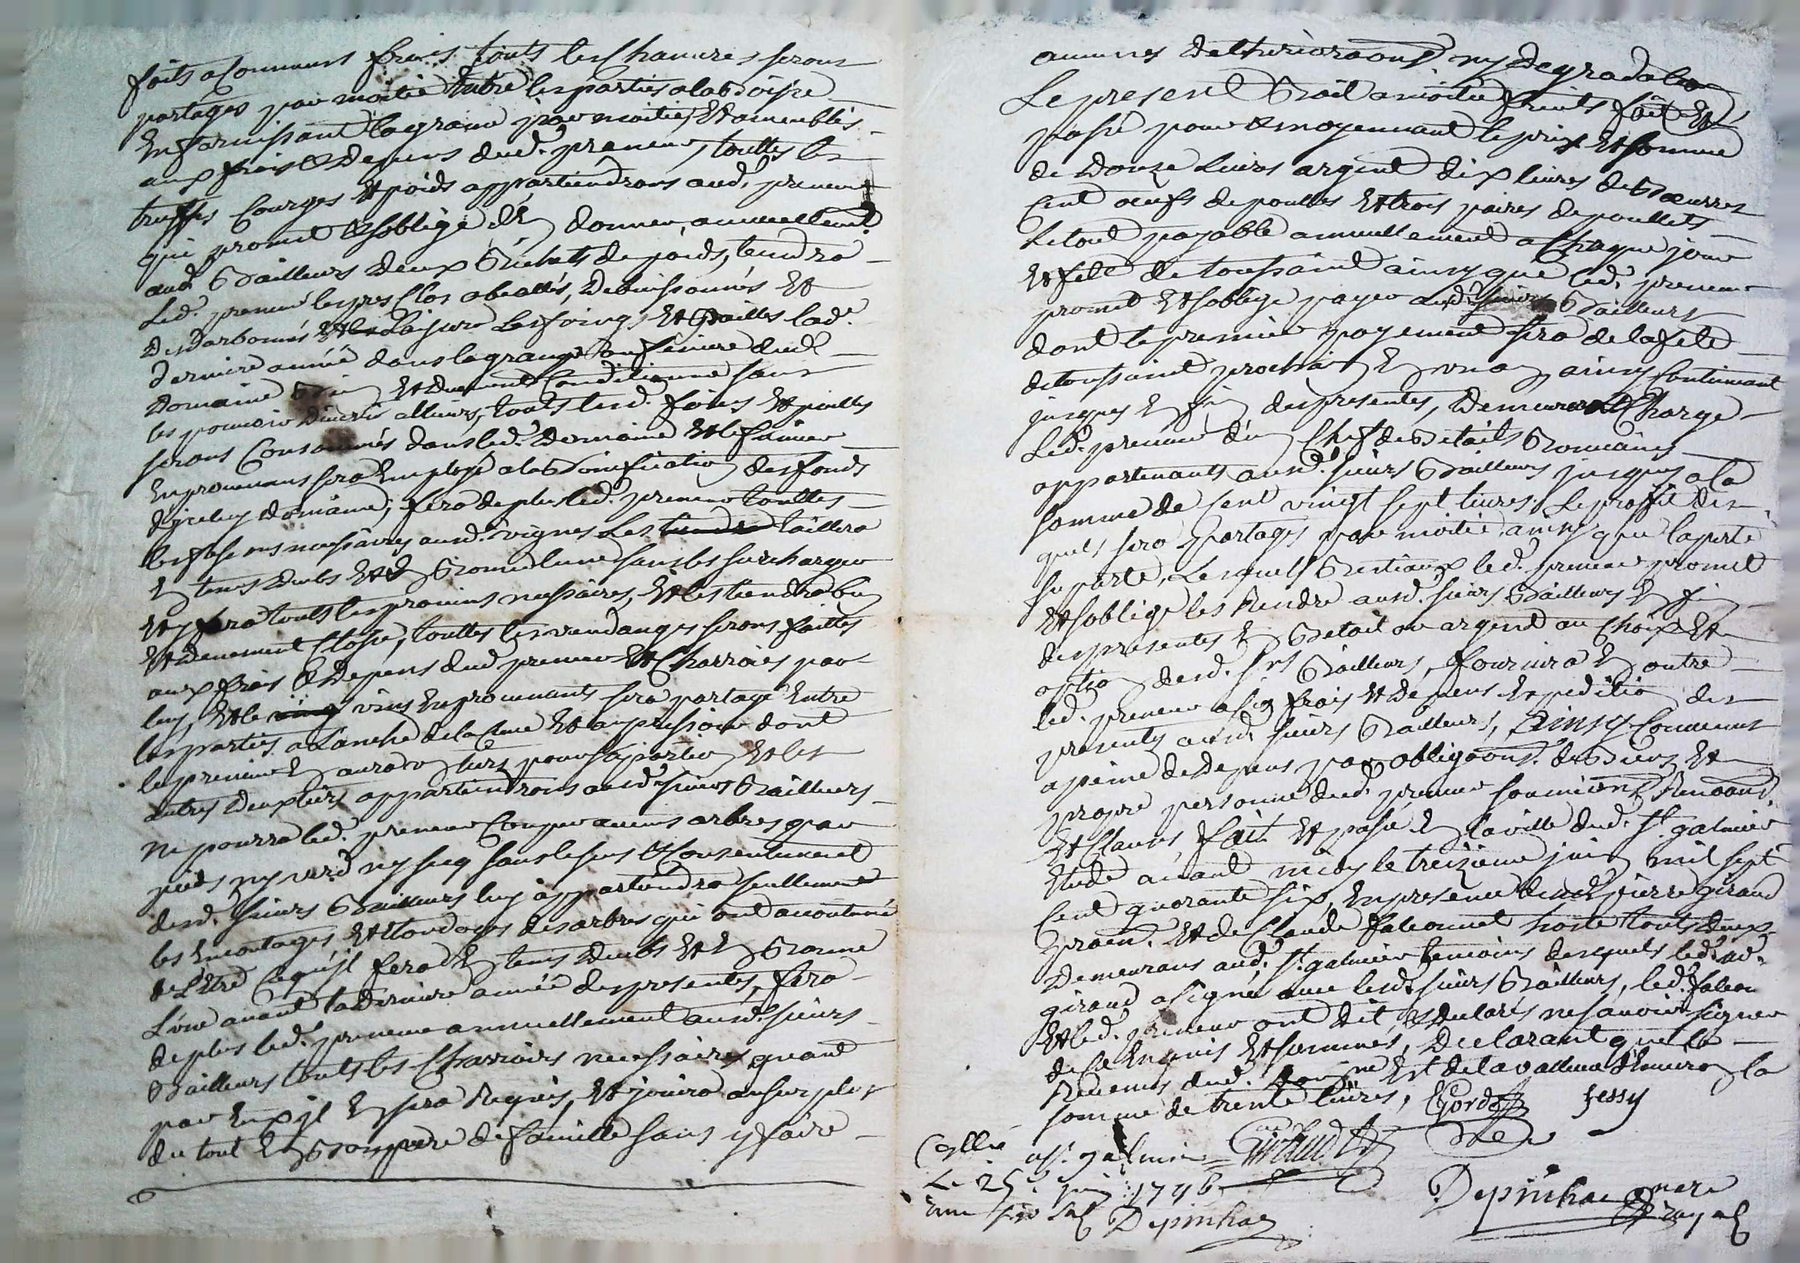 faits a Communs frais touts les Chanvres seront
partagés par moitié Entre les parties a la
En fournissant la graine par moitié, Et
aux frais & depens dud. preneur, touttes les
truffes Courges Et poids appartiendront aud. preneur
qui promet & soblige d'En donner annuellement
aud. Bailleurs deux Bichets de poids, tiendra
Led. preneur les pres Clos Debuissonnés Et
Et Laissera Les foings Et pailles lad.
derniere année dans la grange ou feniere dud.
Domaine Bien Et duement Conditionné sans
les pouvoir divertir ailleurs, touts lesd. foins Et pailles
seront Consommés dans led. Domaine Et le fumier
En provenant sera Employé a la Bonification des fonds
d'jceluy domaine, fera de plus led. preneur touttes
les necessaires auxd. vignes Les taillera
En tems dubs Et En Bonne lune sans les surcharger
Et y fera touts les provins necessaires, Et les tiendra bien
Et duement Closes, touttes les vendanges seront faittes
aux frais & depens dud preneur Et Charroiés par
luy, Et le vin En provenant sera partagé Entre
les parties a L'anche de la Cuve Et au pressoir dont
le preneur En aura un tiers pour sa portion Et les
autres deux tiers appartiendront auxd. sieurs Bailleurs
Ne pourra led. preneur Couper aucuns arbres par
pieds ny verd ny secq sans le sceu & Consentement
desd. sieurs Bailleurs luy appartiendra seullement
les Emontages Et tondages des arbres qui ont accoutumé
de L'Etre Ce qu'jl fera En tems dubs Et En Bonne
Lune avant la derniere année des presentes, fera
de plus led. preneur annuellement auxd. sieurs
Bailleurs touts les Charrois necessaires quand
par Eux jl En sera Requis, Et jouira au surplus
du tout En Bon pere de famille sans y faire
aucunes detterioraons ny degradation
Le present Bail a moitié fruits fait Et
passé pour & moyennant le prix Et somme
de Douze Livres argent dix livres de Beurre
Cent œufs de poulles Et trois paires de poullets
Le tout payable annuellement a Chaque jour
Et fete de toussaint ainsy que led. preneur
promet Et soblige payer auxd. sieurs Bailleurs
dont le premier payement sera de la fete
de toussaint prochain En un an, ainsy Continuant
jusques En fin des presentes, Demeurera Chargé
Led. preneur d'un Chef de Betails Romains
appartenants auxd. sieurs Bailleurs jusques a la
somme de Cent vingt sept livres Le profit des
quels sera partagé par moitié ainsy que la perte
Lesquels Bestiaux led. preneur promet
Et soblige les Rendre auxd. sieurs Bailleurs En fin
des presentes En Betail ou argent au Choix Et
option desd. srs Bailleurs, fournira En outre
led. preneur a ses frais Et depens Expedition des
presentes auxd. sieurs Bailleurs, Ainsy Convenu
a peine de depens par obligaons de Biens Et
propre personne dud. preneur soumions Renonaons
Et Clauses, fait Et passé En la ville dud. St. galmier
Etude avant midy le treizieme juin mil sept
Cent quarante six, En presence de me pierre giraud
praen. Et de Claude falconnet hoste touts deux
Demeurans aud. St. galmier temoins desquels led.
giraud a signé avec lesd. sieurs Bailleurs, led. falcon
Et led. preneur ont dit & declarés ne sçavoir signer
de Ce Enquis Et sommés, Declarant que le
Revenus dud. Domaine Est de la valleur d'Environ la
somme de trente livres, Gord Jessy
Collé a St. galmier Giraud
Le 25 juin 1746 Depinhac nore
Depinhac Royal